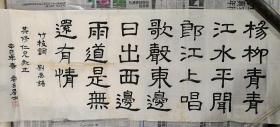 楊柳青青
江水平聞
郎江上唱
歌聲東邊
日出西邊
雨道是無
還有情
竹枝詞 劉禹錫
仁兄教正